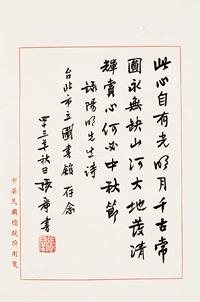 此心自有光明月千古常
圓永無缺山河大地發清
輝賞心何必中秋節
錄陽明先生詩
台北市立圖書館存念
四十三年秋日張羣書
中華民國總統府用箋